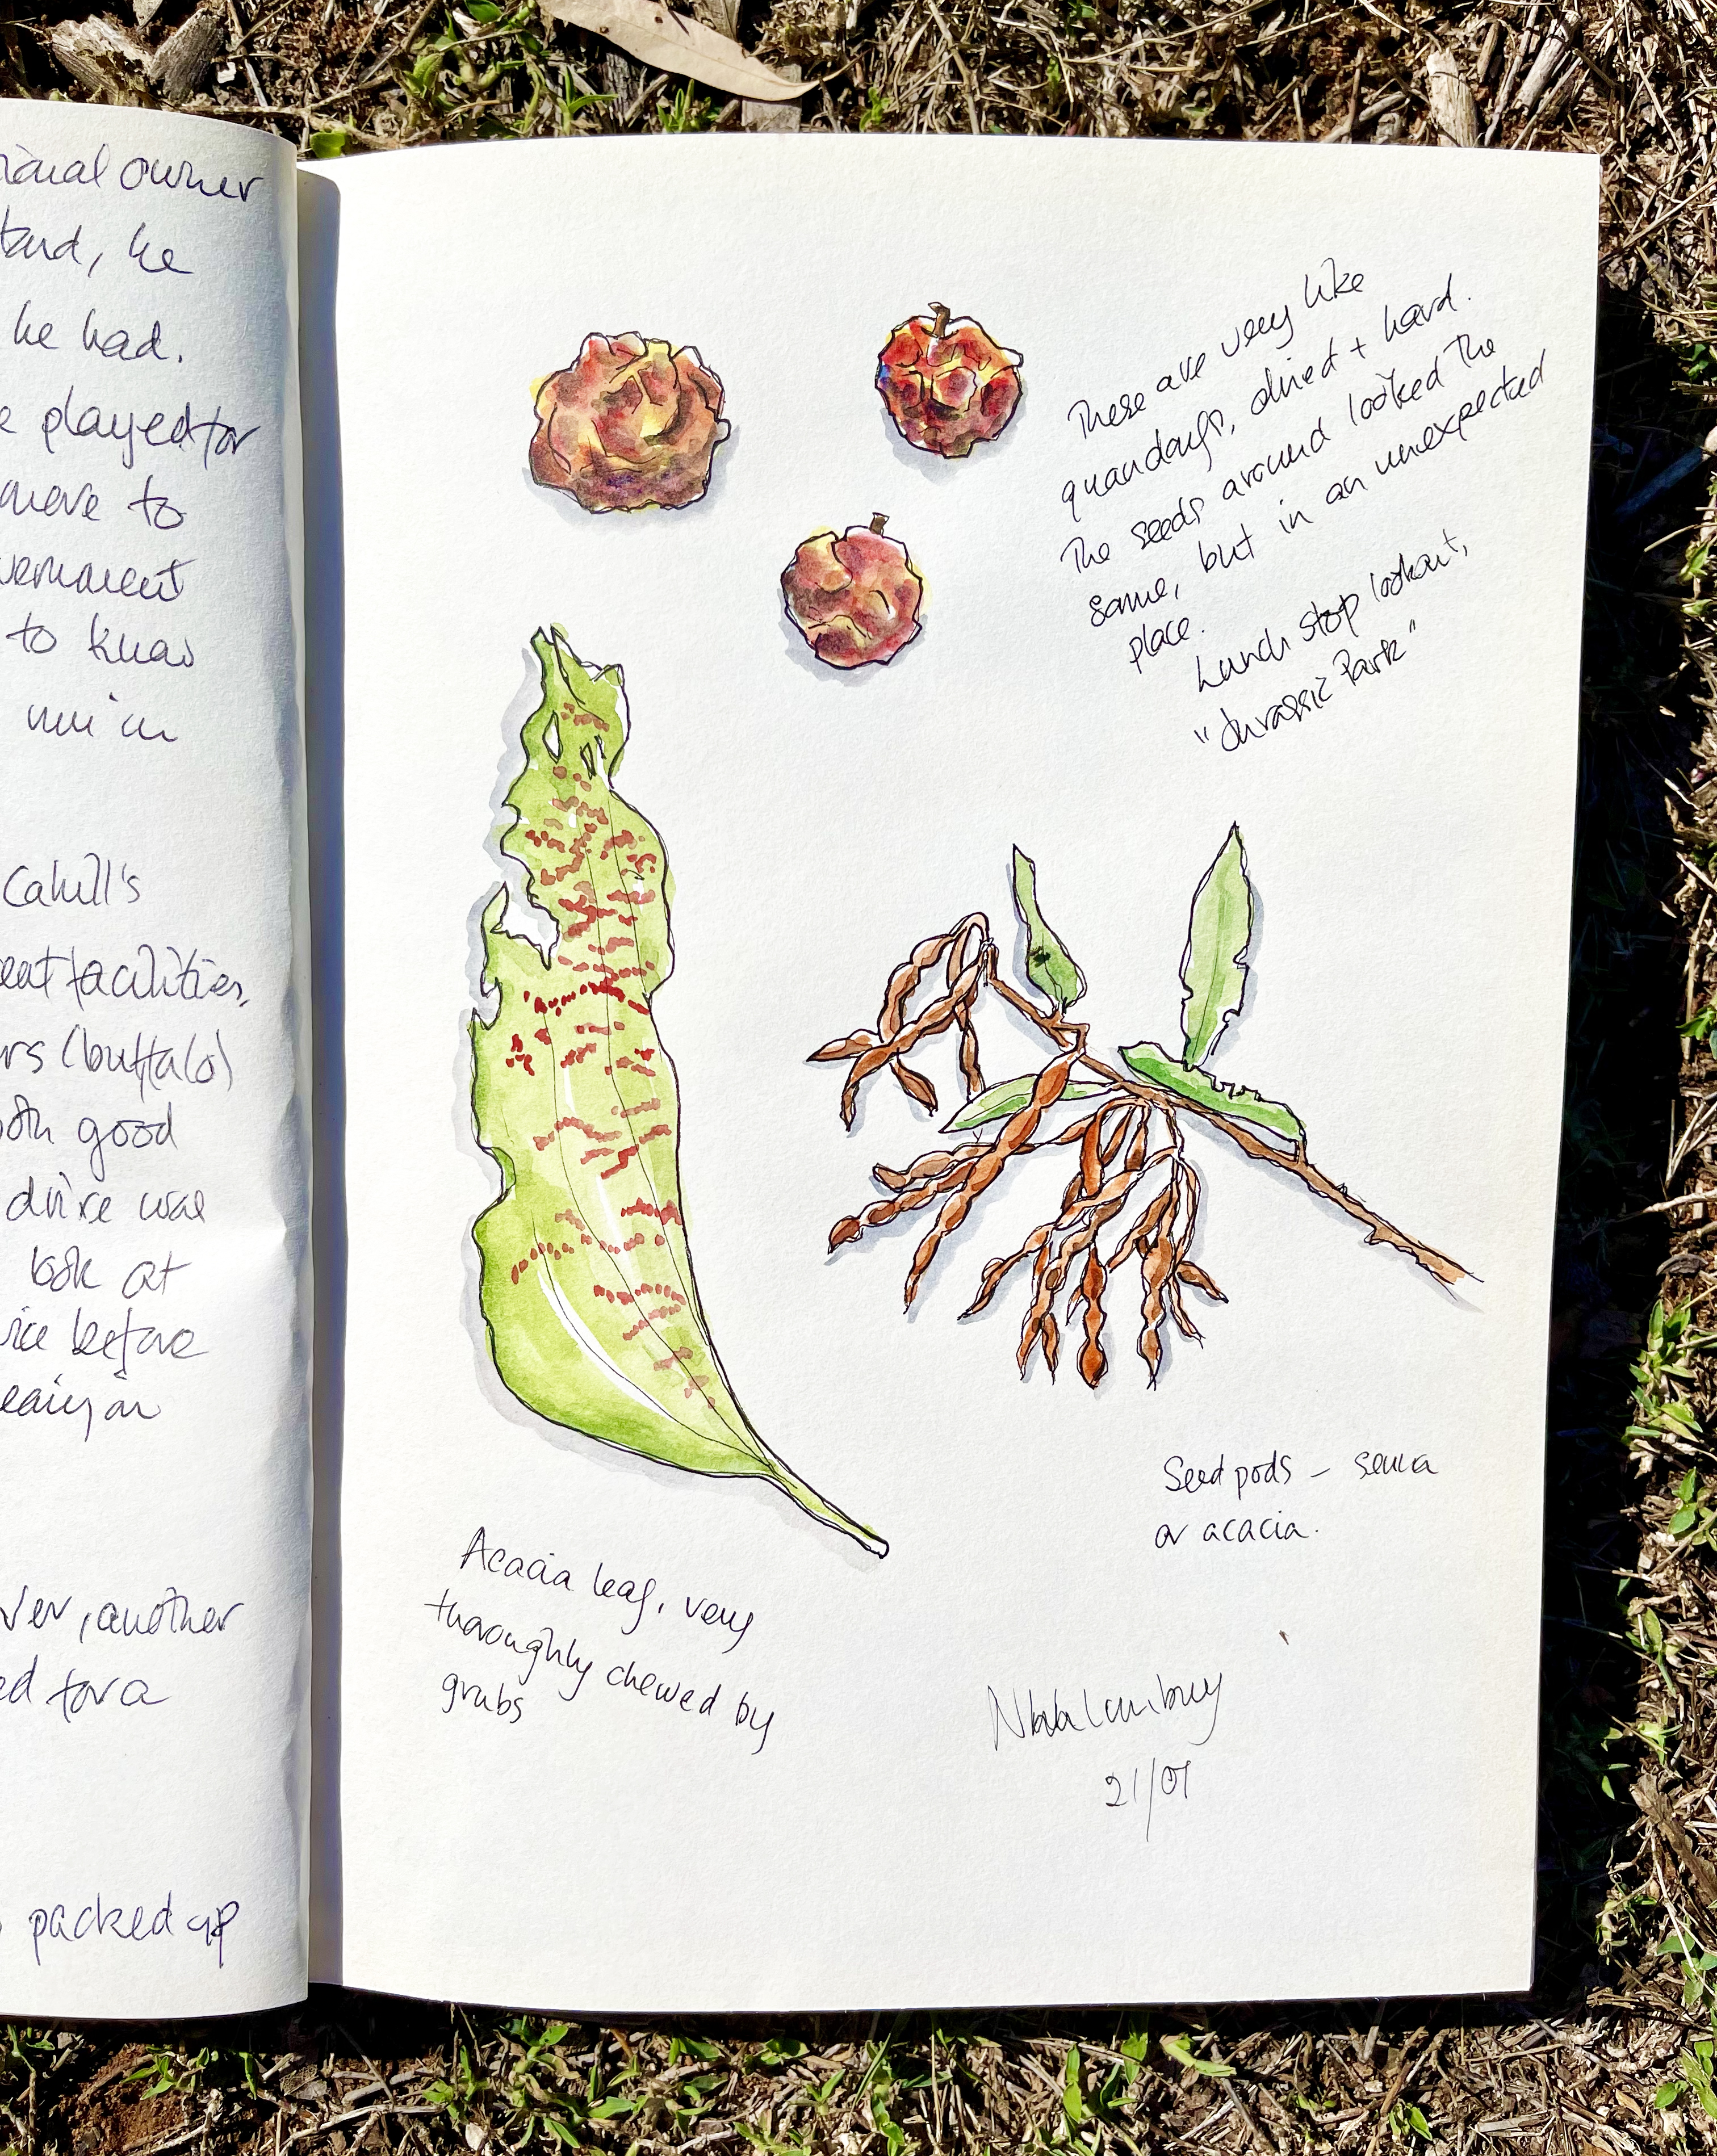 owner
he
he had.
played for
move to
to know
Cahill's
facilities,
(buffalo)
good
drive was
look at
before
another
for a
packed up
These are very like
quandongs, dried + hard.
The seeds around looked the
same, but in an unexpected
place.
Lunch stop lookout,
"Jurassic Park"
Acacia leaf, very
thoroughly chewed by
grubs
Seed pods – senna
or acacia.
21/07